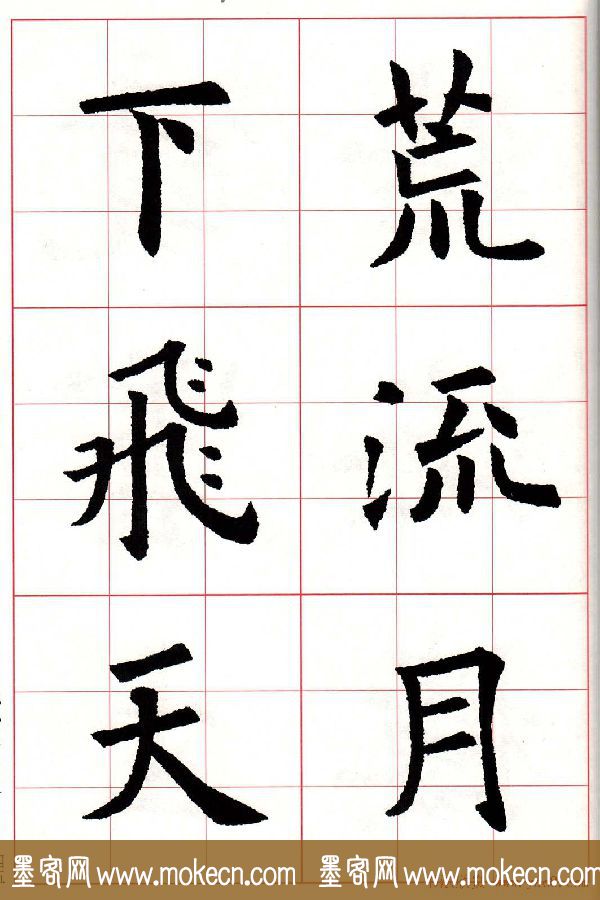 荒流月
下飛天
墨客网 www.mokecn.com 墨客网 www.mokecn.com